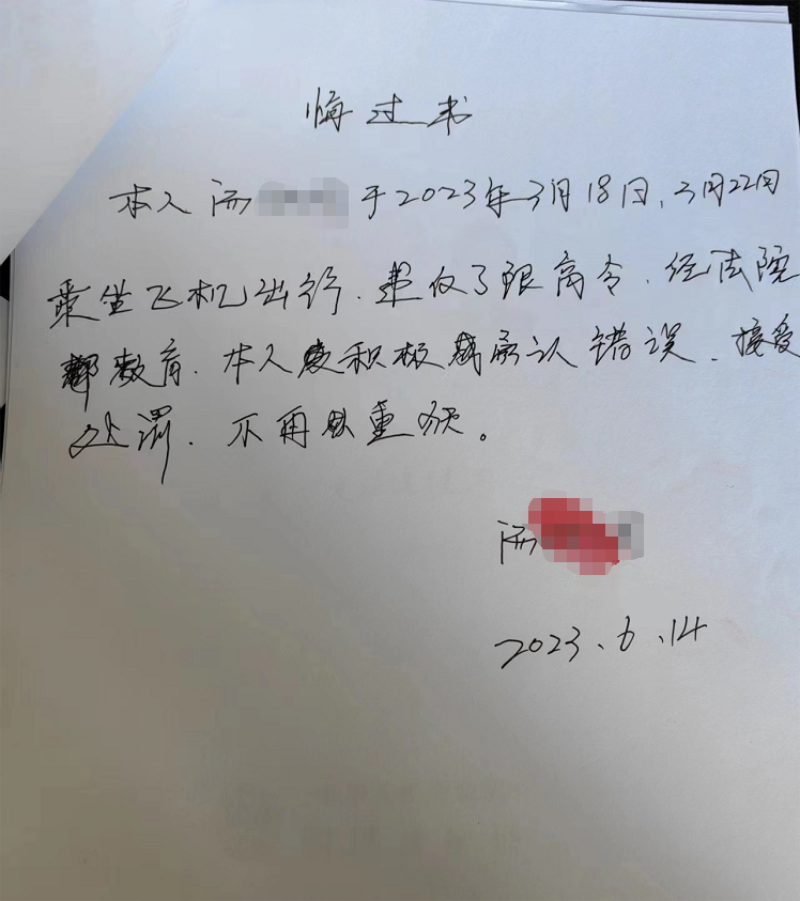 悔过书
本人汤 于2023年3月18日、3月22日
乘坐飞机出行,违反了限高令,经法院
教育,本人积极承认错误,接受
处罚,不再重犯。
汤
2023.6.14